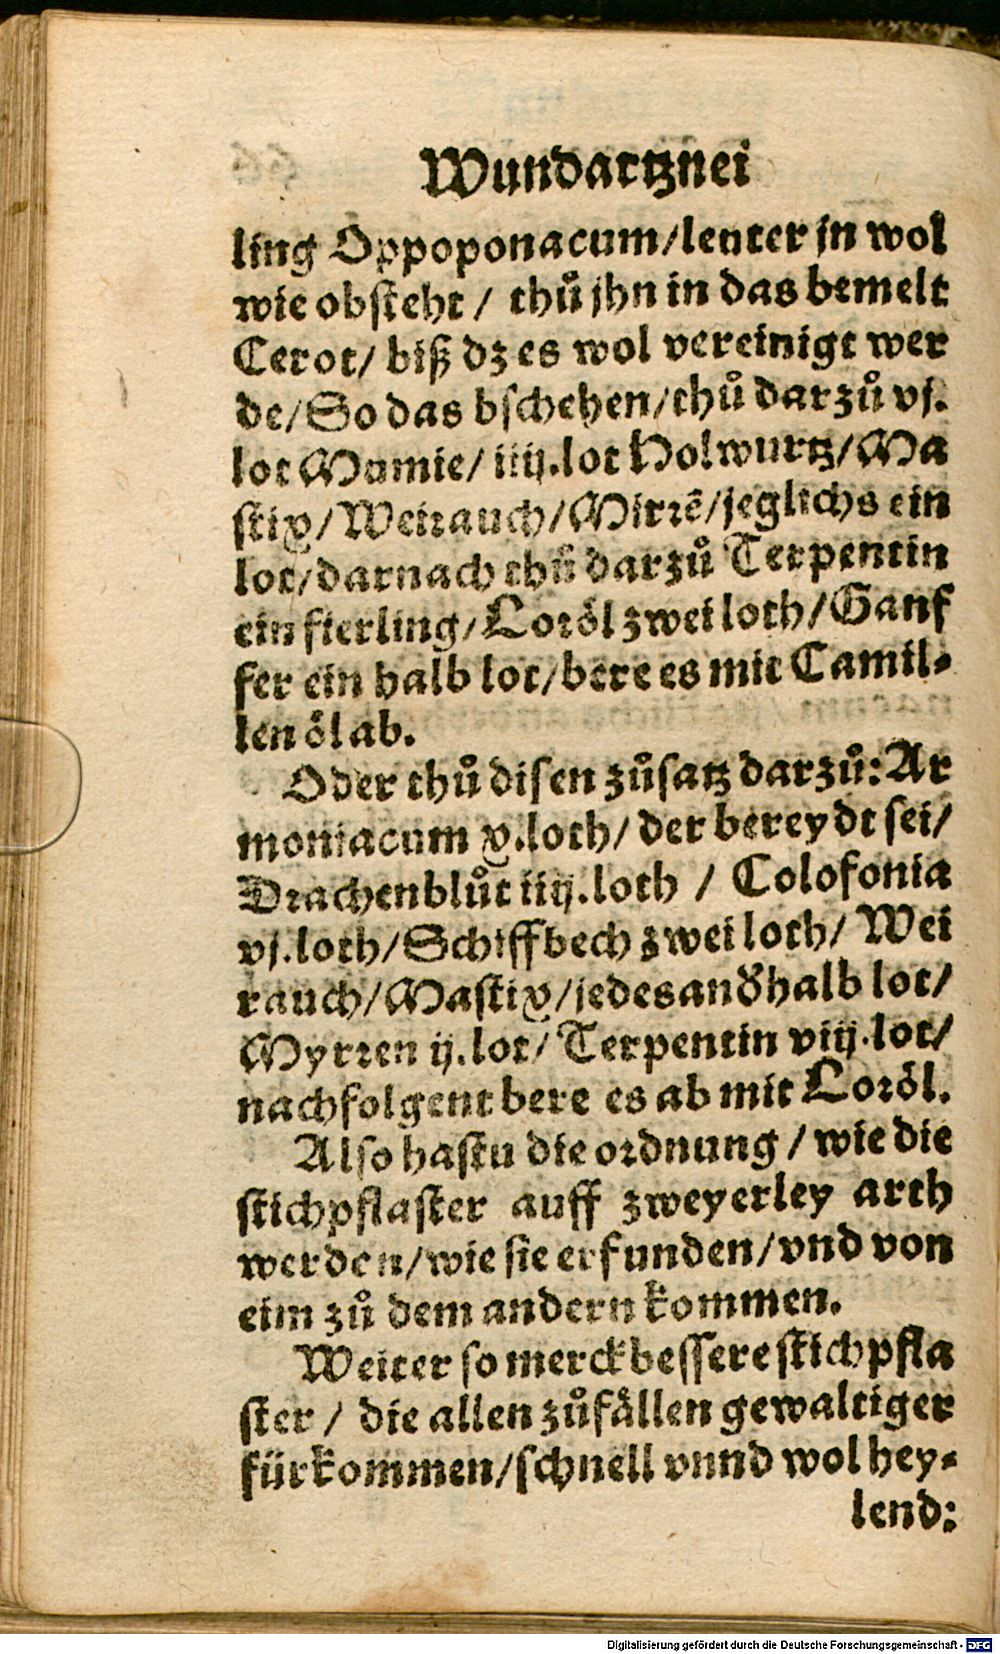 Wundartznei
ling Oppoponacum/leuter jn wol
wie obsteht / thů jhn in das bemelt
Cerot/ biß dz es wol vereinigt wer
de/So das bschehen/thů darzů vj.
lot Mumie/ iiij.lot Holwurtz/Ma
stix/Weirauch/Mirrẽ/jeglichs ein
lot/darnach thů darzů Terpentin
ein fierling/Loröl zwei loth/Ganf
fer ein halb lot/bere es mit Camil⸗
len öl ab.
Oder thů disen zůsatz darzů:Ar
moniacum x.loth/ der bereydt sei/
Drachenblůt iiij.loth / Colofonia
vj.loth/Schiffbech zwei loth/ Wei
rauch/Mastix/jedes andhalb lot/
Myrren ij.lot/ Terpentin viij.lot/
nachfolgent bere es ab mit Loröl.
Also hastu die ordnung / wie die
stichpflaster auff zweyerley arth
werden/wie sie erfunden/vnd von
eim zů dem andern kommen.
Weiter so merck bessere stichpfla
ster / die allen zůfällen gewaltiger
fürkommen/schnell vnnd wol hey⸗
lend:
Digitalisierung gefördert durch die Deutsche Forschungsgemeinschaft - DFG